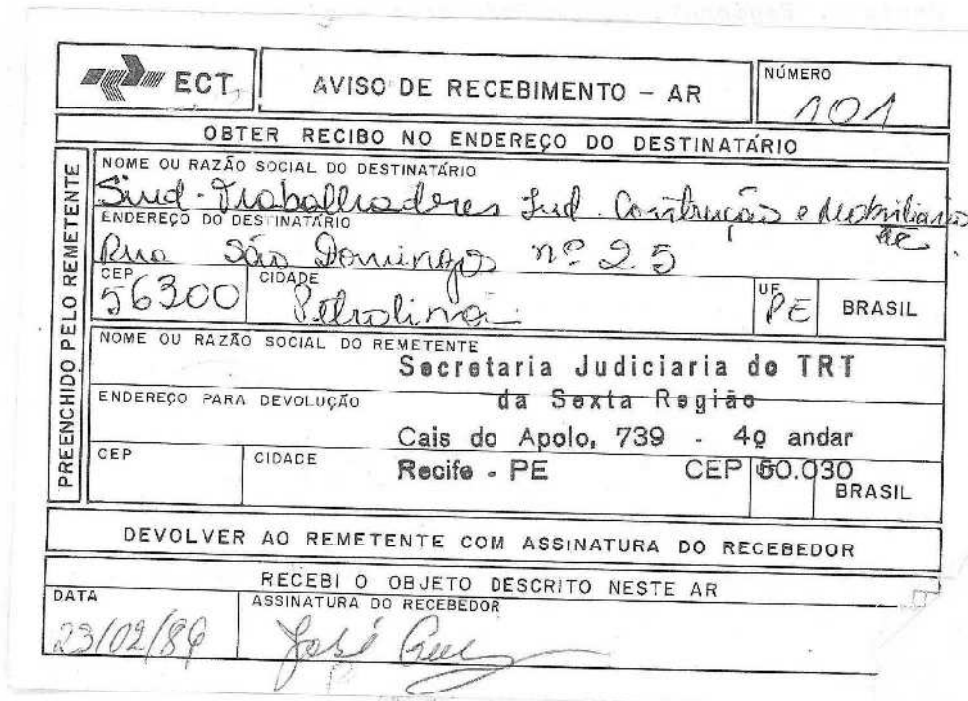 ECT
AVISO DE RECEBIMENTO - AR
NÚMERO
101
OBTER RECIBO NO ENDEREÇO DO DESTINATÁRIO
PREENCHIDO PELO REMETENTE
NOME OU RAZÃO SOCIAL DO DESTINATÁRIO
Sind-Trabalhadores Ind. Construção e Mobiliário
ENDEREÇO DO DESTINATÁRIO
Rua São Domingos nº 25
CEP
56300
CIDADE
Petrolina
UF
PE
BRASIL
NOME OU RAZÃO SOCIAL DO REMETENTE
Secretaria Judiciaria do TRT
ENDEREÇO PARA DEVOLUÇÃO
da Sexta Região
Cais do Apolo, 739 - 4º andar
CEP
CIDADE
Recife - PE CEP 50.030
BRASIL
DEVOLVER AO REMETENTE COM ASSINATURA DO RECEBEDOR
RECEBI O OBJETO DESCRITO NESTE AR
DATA
23/02/89
ASSINATURA DO RECEBEDOR
José